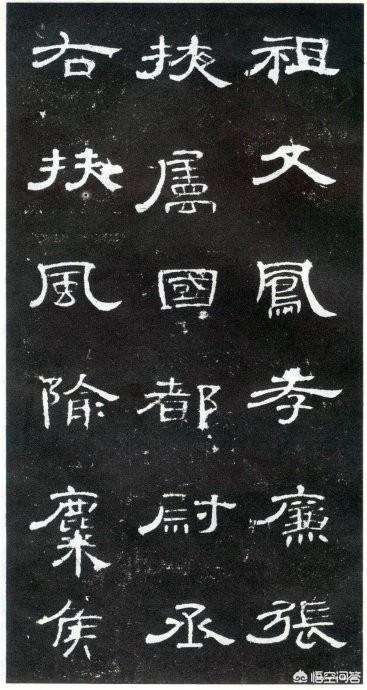 祖父鳳孝廉張
掖屬國都尉丞
右扶風隃麋侯
悟空问答